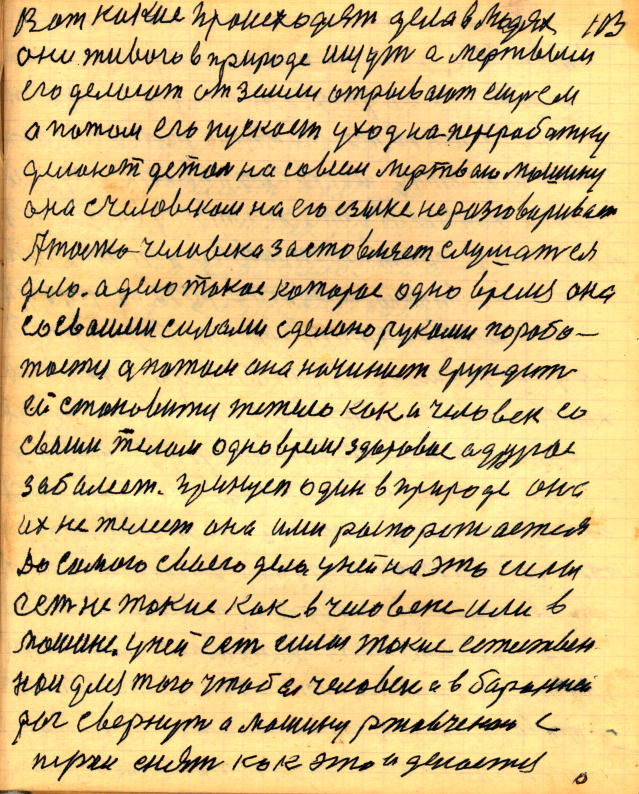 Вот какие происходят дела в людях 103
они живого в природе ищут а мертвым
его делают от земли отрывают сырем
а потом его пускают у ход на переработку
делают детал на совсем мертваю машину
она с человеком на его езыке не разговаривает
А только человека заставляет слушатся
дело. а дело такое которое одно время она
со своими силами сделано руками порабо-
тости а потом она начинает ерундит
ей становити тежело как и человек со
своим телом одно время здоровое а другое
заболеет. принцеп один в природе она
их не желеет она ими распоражается
До самого своего дела у ней на это силы
сет не такие как в человеке или в
машине. у ней ест силы такие естествен
нои для того чтобы человека в бараний
рог свернут а машину ржавченою с
терки снят как это и делается